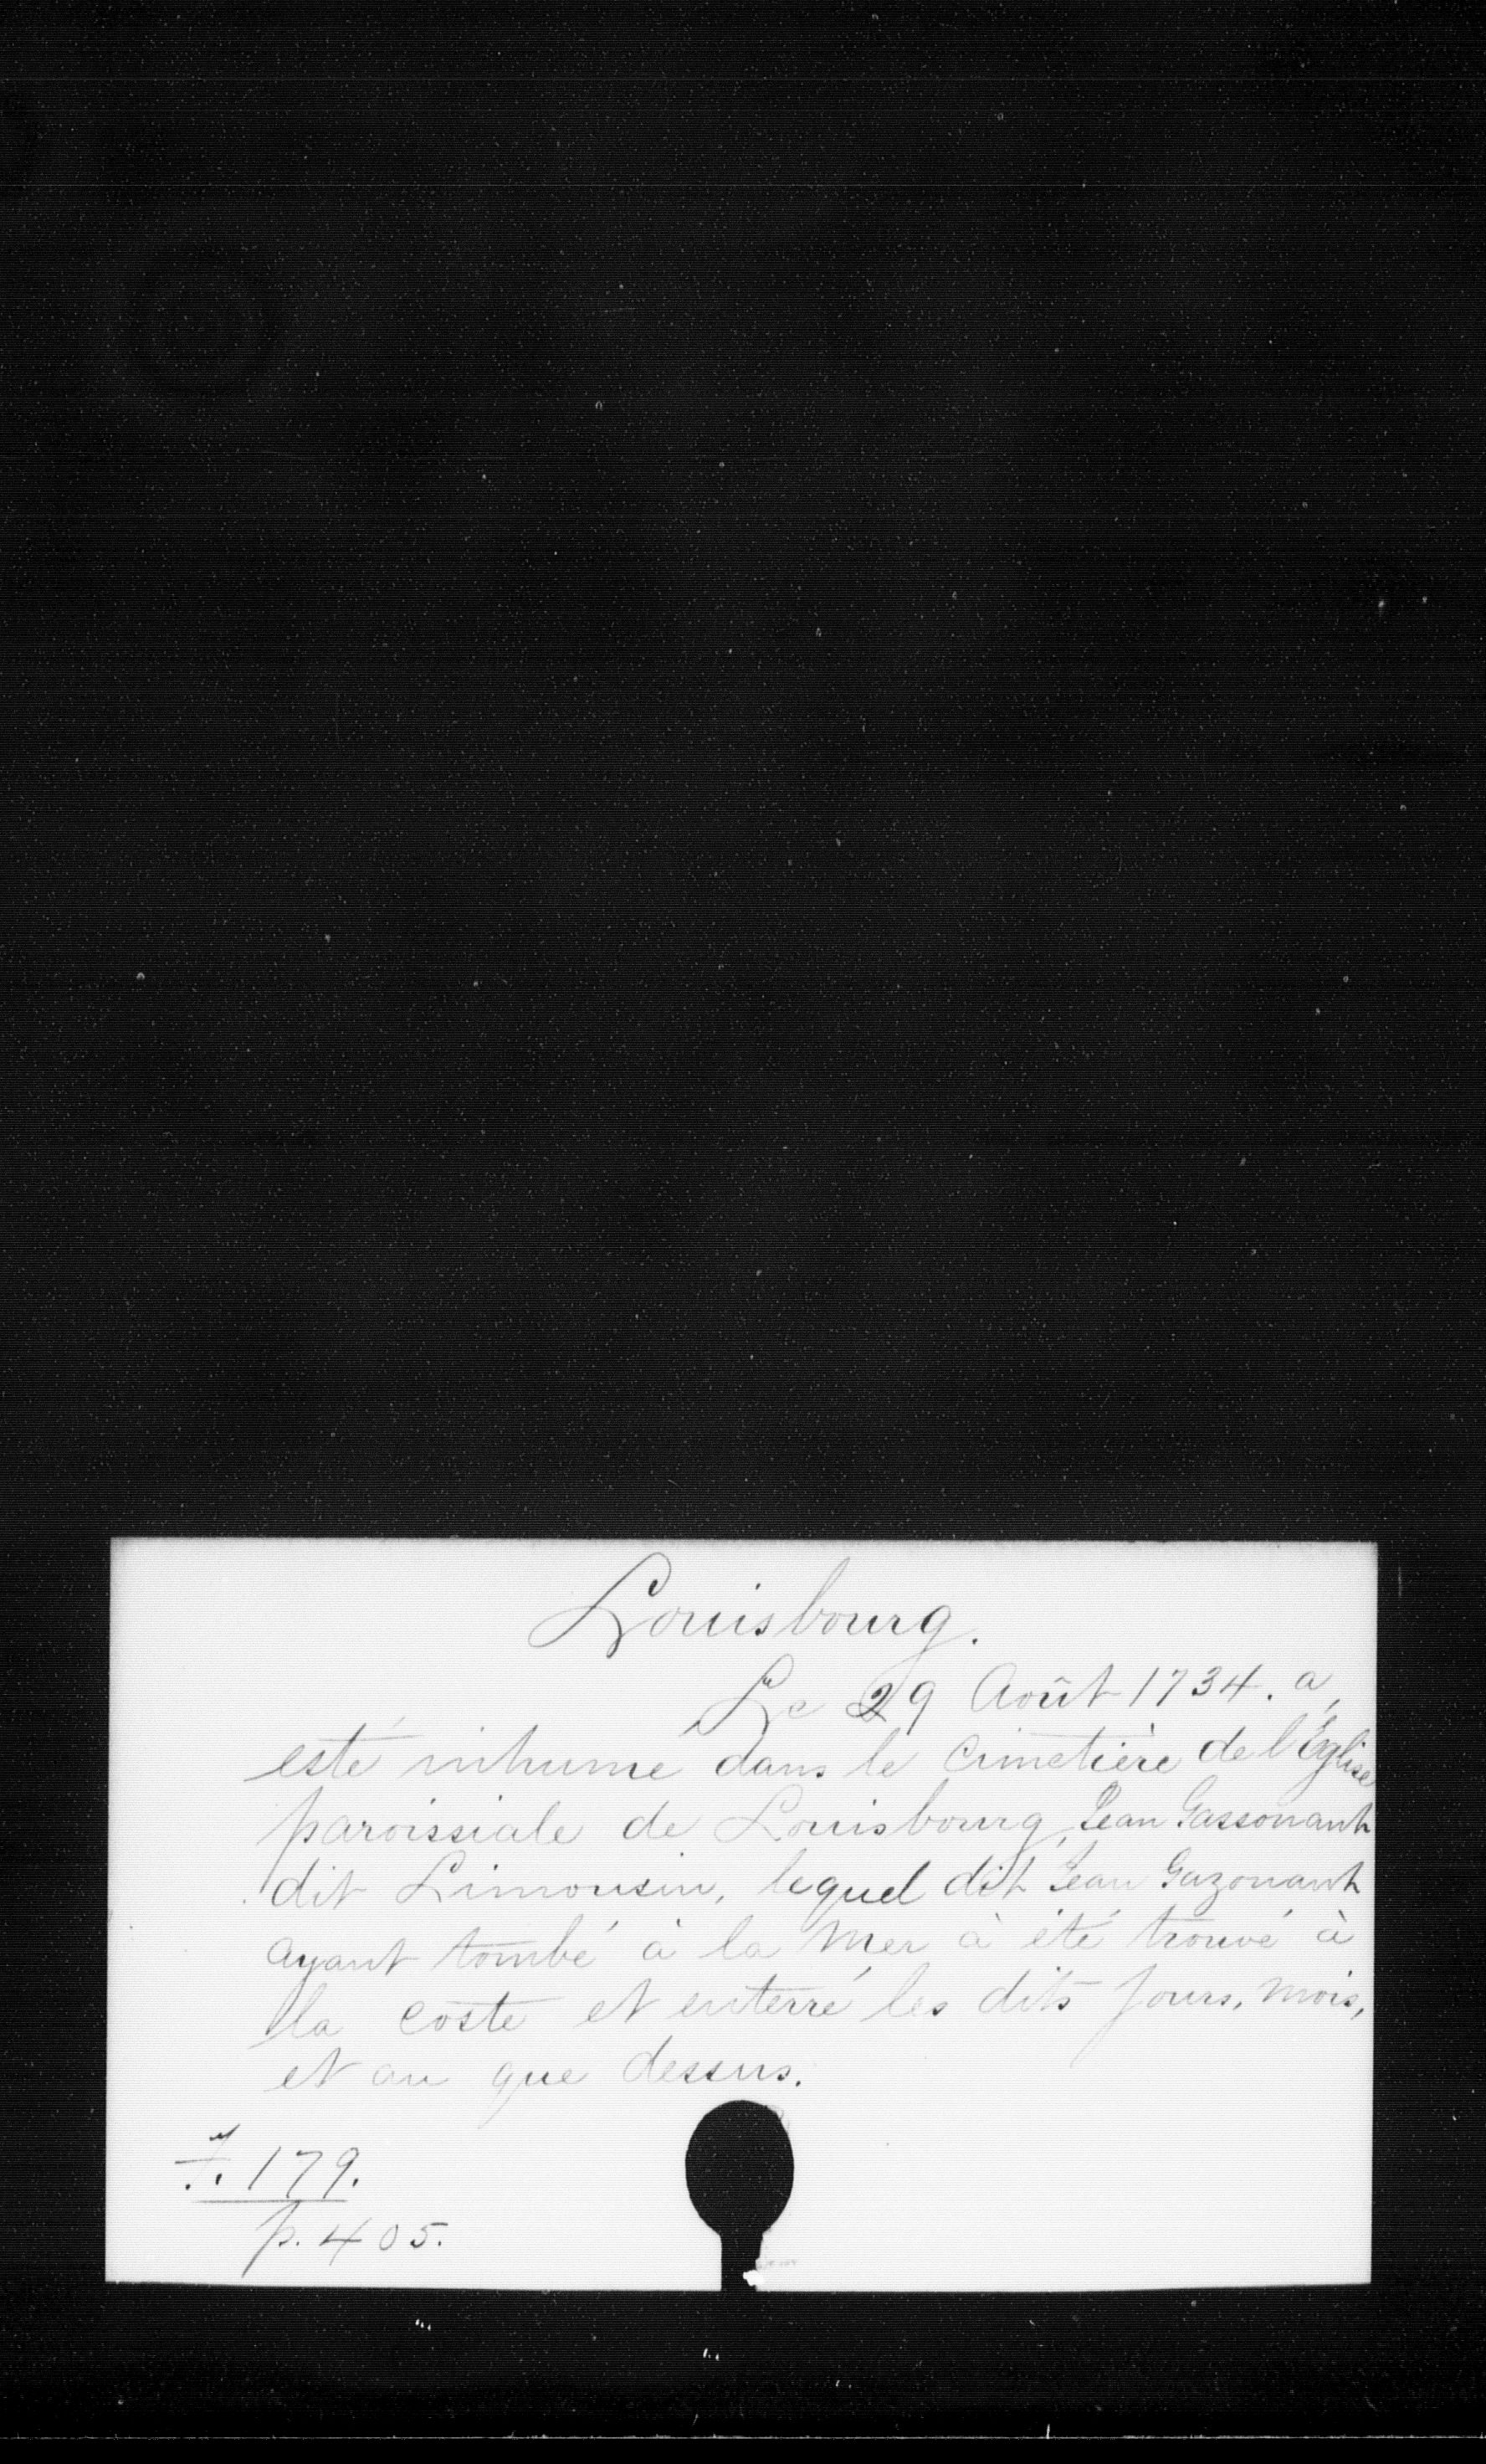 Louisbourg.
Le 29 Août 1734. a
esté inhumé dans le cimetière de l'Église
paroissiale de Louisbourg, Jean Gassonant
dit Limousin, lequel dit Jean Gazonant
ayant tombé à la Mer à été trouvé à
la coste et enterré les dits jours, mois,
et an que dessus.
F. 179.
p. 405.